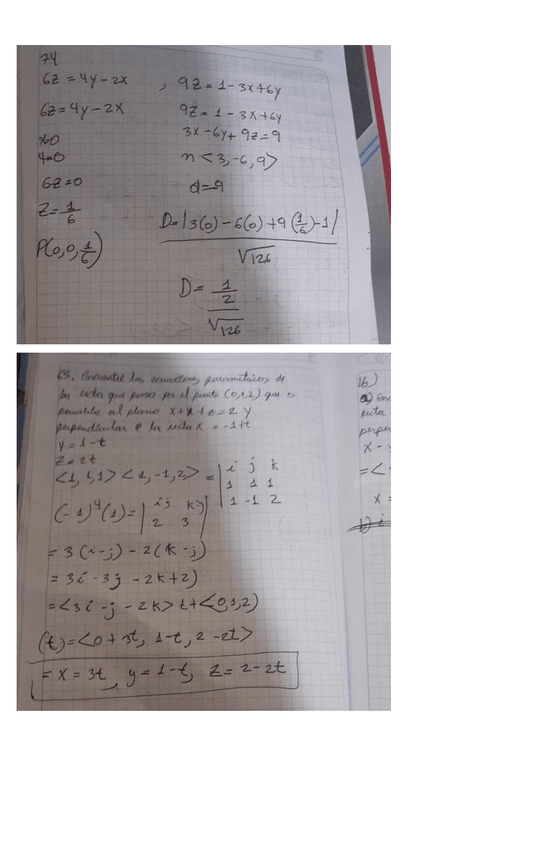 74
6z = 4y - 2x , 9z = 1 - 3x + 6y
6z = 4y - 2x 9z = 1 - 3x + 6y
x=0 3x - 6y + 9z = 9
y=0 n <3, -6, 9>
6z = 0 d = 9
z = 1/6 D = |3(0) - 6(0) + 9(1/6) - 1|
√126
P(0,0,1/6)
D = 1/2
√126
63. Encuentre las ecuaciones paramétricas de
la recta que pasa por el punto (0,1,2) que es
paralela al plano x + y + z = 2 y
perpendicular a la recta x = -1+t
y = 1 - t
z = 2t
<1,1,1> <1,-1,2> = | i j k
1 1 1
1 -1 2
(-1)⁴(1) = | i j k
2 3 |
= 3(i-j) - 2(k-j)
= 3i - 3j - 2k + 2)
= <3i - j - 2k> t + <0,1,2)
(t) = <0 + 3t, 1-t, 2 - 2t>
= x = 3t, y = 1 - t, z = 2 - 2t
16)
a)
x -
= <
x =